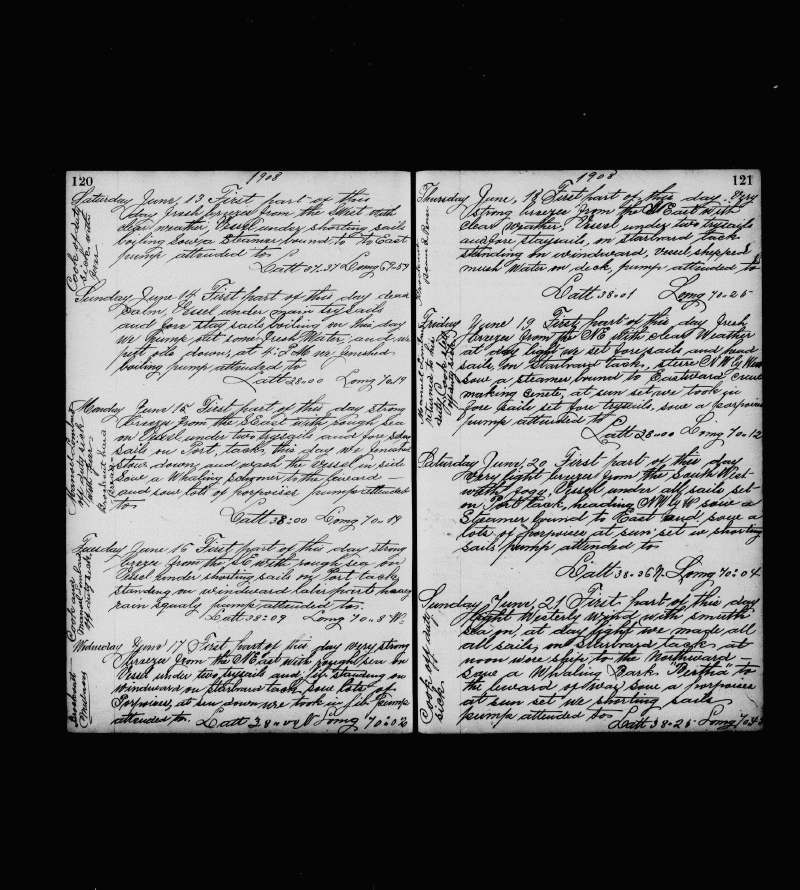 120
1908
Saturday June, 13 First part of this
day fresh breeze from the West with
clear weather, Vessel under shorting sails
boiling saw a Steamer bound to to East
pump attended to
Latt 37.37 Long 69.59
Cook of duty
sick with
fever
Sunday June 14 First part of this day dead
Calm, Vessel under main trysails
and fore stay sails boiling on this day
we Pump out some Fresh Water, and we
put oile down, at 4. P.M we finished
boiling pump attended to
Latt 38=00 Long 70.19
Monday June 15 First part of this day strong
breeze from the S.East with rough sea
on Vessel under two trysails and fore stay
sails on Port, tack, this day we finished
Stow down, and wash the Vessel in side
Saw a Whaling schooner to the leward
and saw lots of porpoises pump attended
to
Latt 38:00 Long 70..19
Manuel Lombard
off duty sick
with fever
Tuesday June 16 First part of this day strong
breeze from the SE with rough sea on
Vessel under shorting sails on Port tack,
standing on windward later part heavy
rain squaly pump attended to.
Latt 38:09 Long 70..8 W
Cook and
Manuel Lombard
off duty sick.
Wednesday June 17 First part of this day very strong
breeze from the N East with rough sea on
Vessel under two, trysails and jib standing on
windward on starboard tack, saw lots of
Porpoises, at sun down we took in jib Pump
attended to. Latt Long 70:02
121
1908
Thursday June, 18 First part of this day Very
strong breeze from the N East with
clear Weather, Vessel under two trysails
and fore staysails, on starboard tack
standing on windward, vessel shipped
mush Water on deck, pump attended to
Latt 38.01 Long 70.25
Friday June 19 First part of this day fresh
breeze from the NE with clear Weather
at day light we set foresails and head
sails, on starboard tack, steer N W by W
saw a steamer bound to Eastward crew
making sinete, at sun set we took in
fore sails set fore trysails, saw a porpoises
pump attended to
Latt 38=00 Long 70..12
Manuel Lombard
returned to his
duty Cook still
off duty sick
Saturday June, 20 First part of this day
very light breeze from the South West
with fogy, Vessel under all sails set
on Port tack, heading N W by W saw a
Steamer bound to East and saw a
lots of porpoises at sun set in shorting
sails pump attended to
Latt 38.36 N. Long 70:04
Sunday June, 21 First part of this day
light Westerly Wind, with smuth
sea on, at day light we made all
all sails, on starboard tack, at
noon wore ship to the Northward
saw a Whaling Bark "Bertha" to
the leward of was saw a porpoises
at sun set we shorting sails
pump attended to
Latt 38-25 Long
Cook off duty
sick